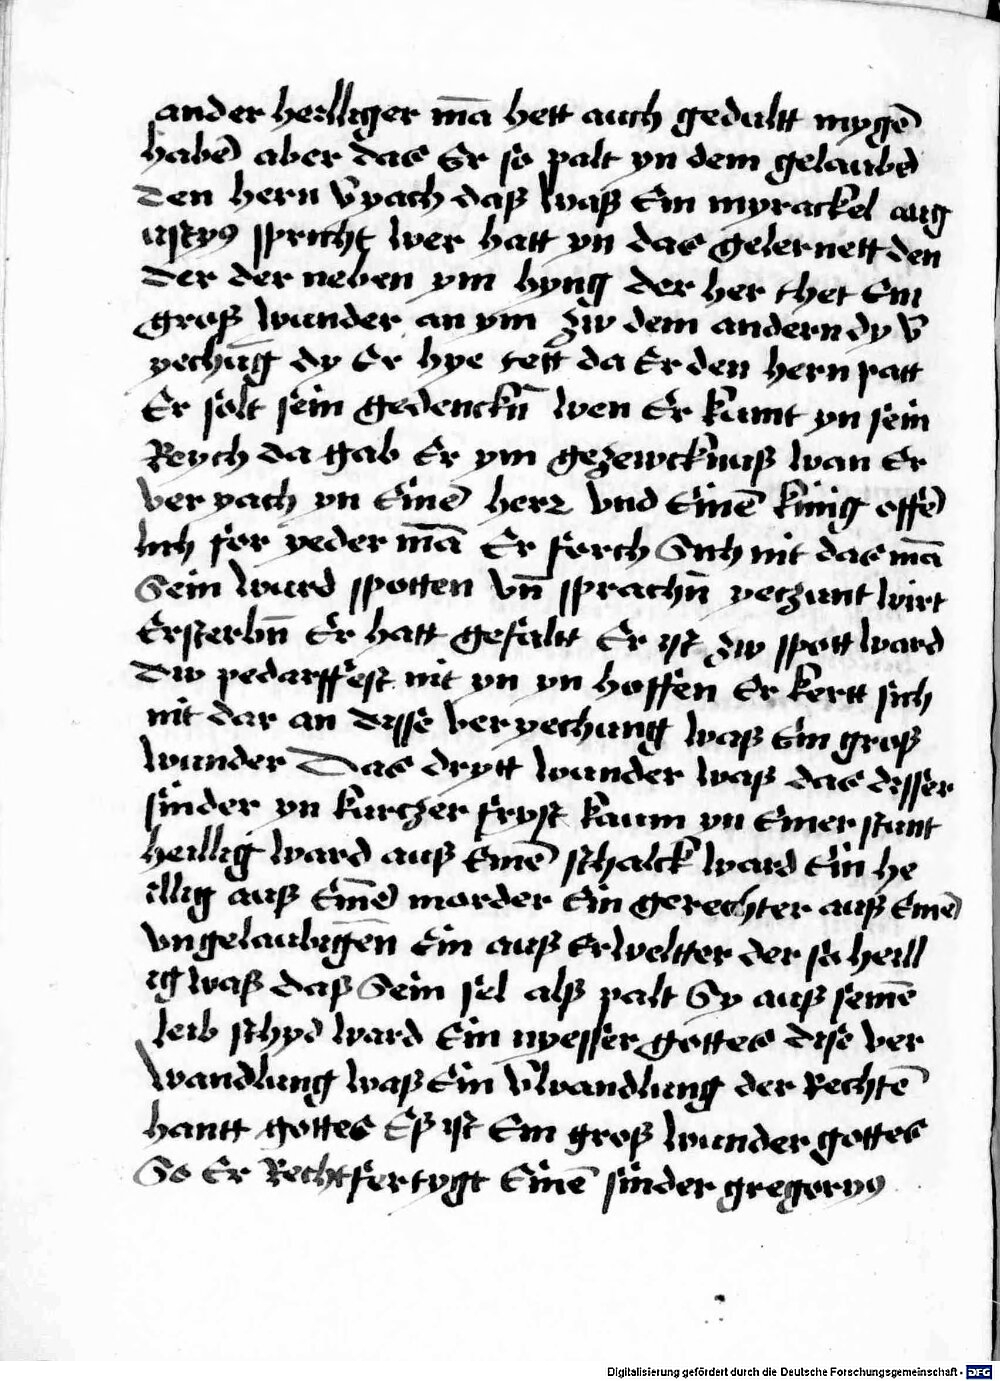 ander heilliger mā hett auch gedultt mygē
habē aber das Er so palt yn dem gelaubē
Den hern v̄yach daß waß Ein myrackel aug
ustyꝰ spricht wer hatt yn das gelernett den
Der der neben ym hyng der her thet Ein
groß wunder an ym zw dem andern dy v̄
yechūg dy Er hye tett da Er den hern patt
Er solt sein gedenckn̄ wen Er kumt yn sein
Reych da gab Er ym gezewcknuß wan Er
ver yach yn Einē herz vnd Einē kinig offē
lich for yeder mā Er forch Sich nit das mā
Sein wurd spotten vn̄ sprachn̄ yeczunt wirt
Ersterbn̄ Er hatt gefaltt Er ist zw spott ward
Dw pedarffest nit yn yn hoffen Er kertt sich
nit dar an disse ver yechung waß Ein groß
wunder Das drytt wunder waß das disser
sinder yn kurczer fryst kaum yn Einer stunt
heillig ward auß Einē schalck ward Ein he
illig auß Einē morder Ein gerechter auß Einē
vngelaubigēn Ein auß Erweltter der so heill
ig waß daß Sein sel alß palt Sy auß seinē
leib schyd ward Ein nyesser gottes dise ver
wandlung waß Ein v̄wandlung der Rechtē
hantt gottes Eß ist Ein groß wunder gottes
So Er Rechtfertygt Einē sinder gregoryꝰ
Digitalisierung gefördert durch die Deutsche Forschungsgemeinschaft - DFG